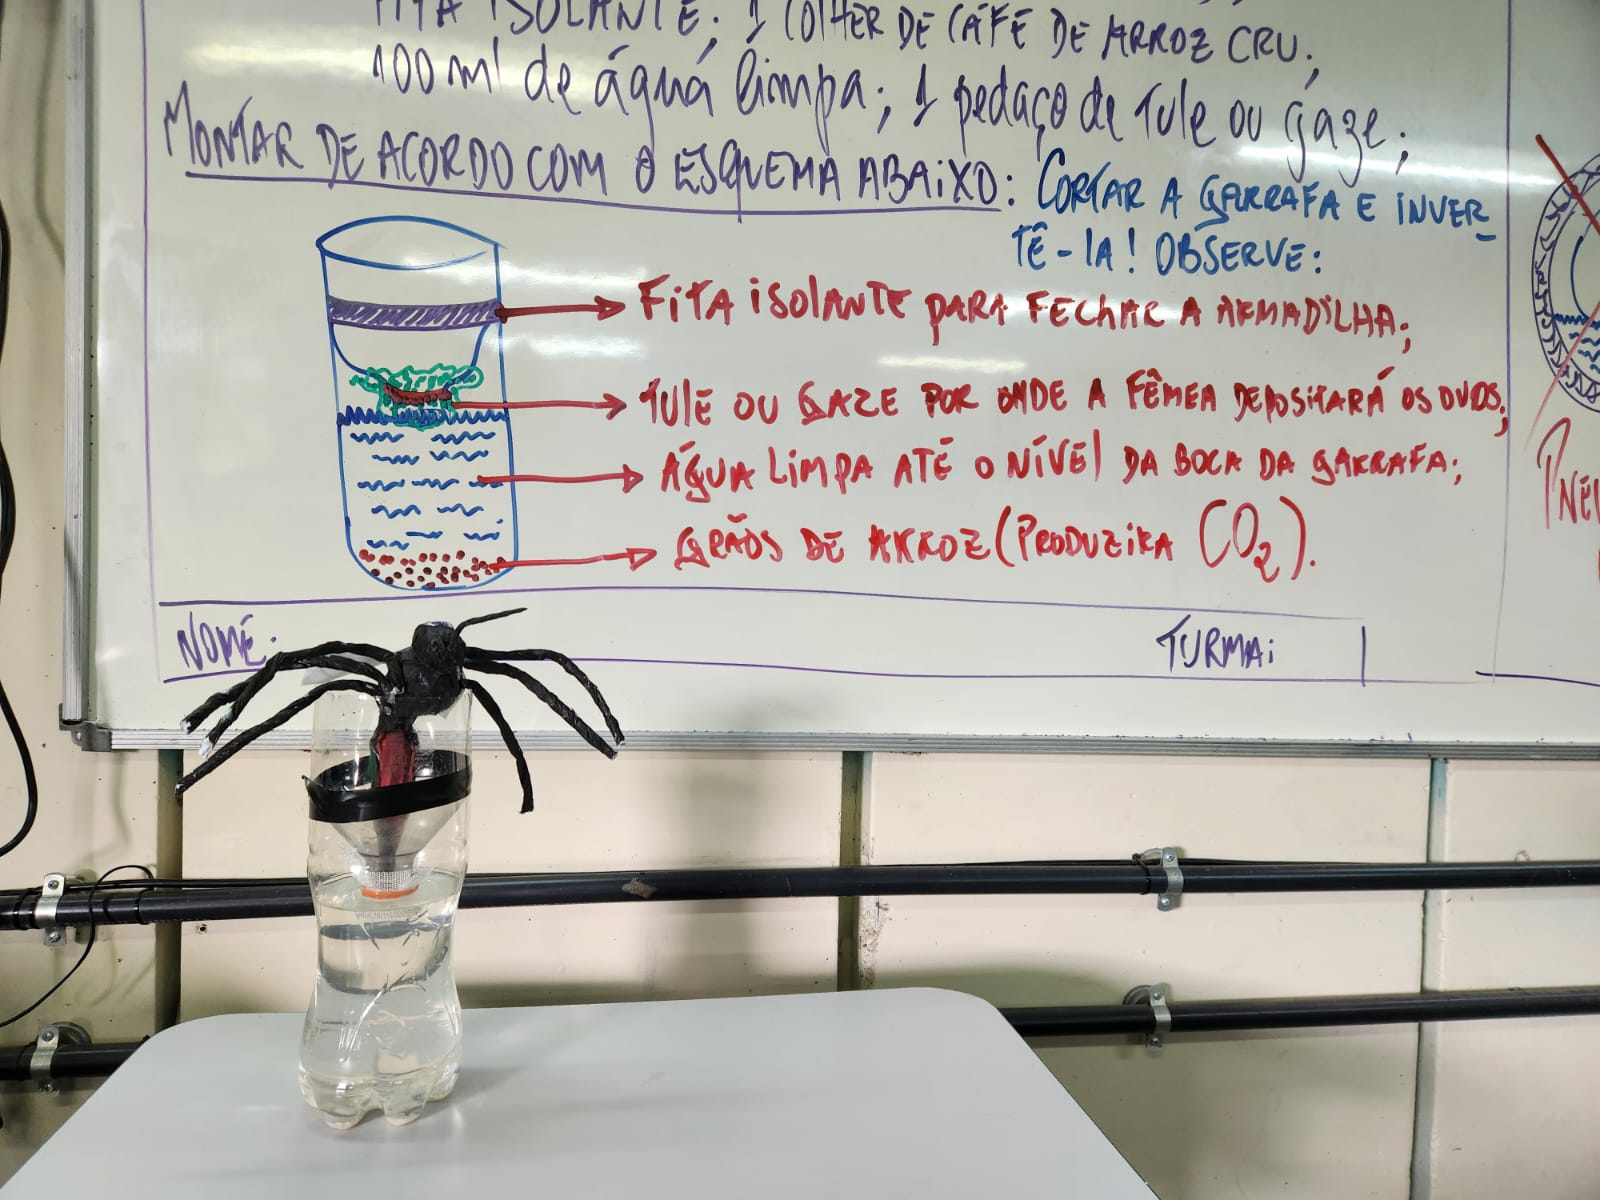 FITA ISOLANTE; 1 COLHER DE CAFÉ DE ARROZ CRU;
100 ml de água limpa; 1 pedaço de Tule ou gaze;
MONTAR DE ACORDO COM O ESQUEMA ABAIXO: CORTAR A GARRAFA E INVER-
TÊ-LA! OBSERVE:
FITA ISOLANTE PARA FECHAR A ARMADILHA;
TULE OU GAZE POR ONDE A FÊMEA DEPOSITARÁ OS OVOS;
ÁGUA LIMPA ATÉ O NÍVEL DA BOCA DA GARRAFA;
GRÃOS DE ARROZ (PRODUZIRA CO2).
NOME:
TURMA: